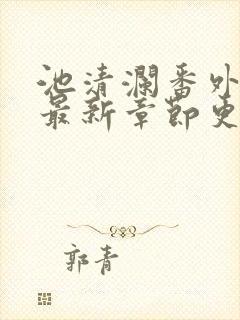 池清澜番外
最新章节更
郭青